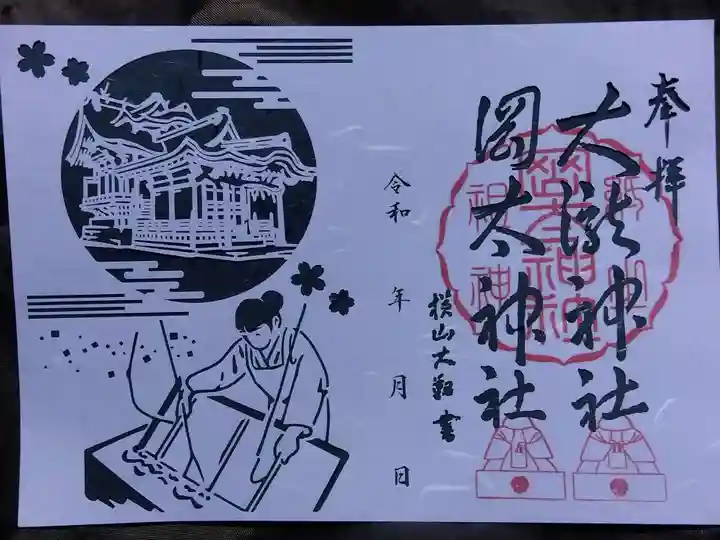 奉拝
大瀧神社
岡太神社
横山大観書
令和 年 月 日